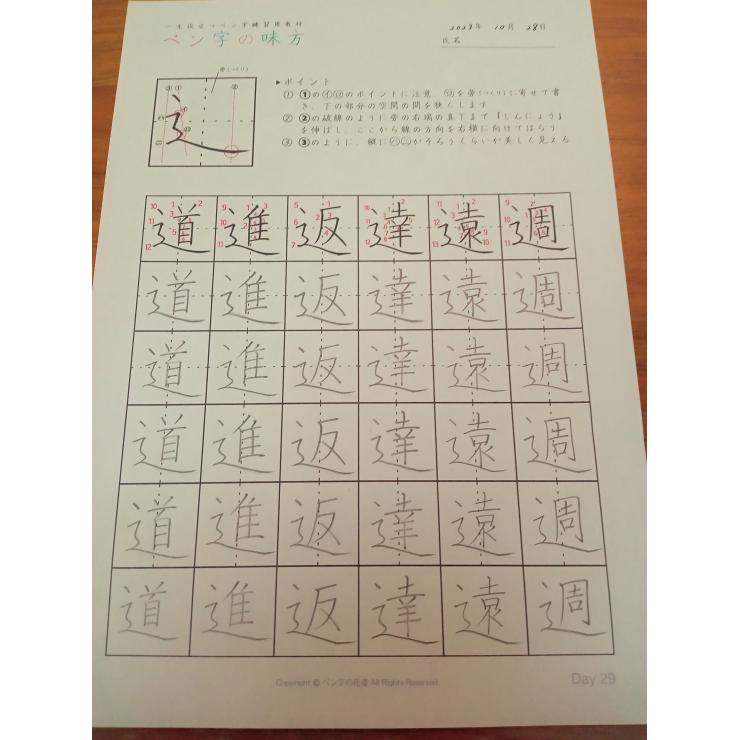 一生役立つペン字練習用教材
ペン字の味方
2023年 10月 28日
氏名
旁(つくり)
▶ポイント
① ❶の㋑㋺のポイントに注意、㋺を旁(つくり)に寄せて書
き、下の部分の空間の間を狭くします
② ❷の破線のように旁の右端の真下まで『しんにょう』
を伸ばし、ここから線の方向を右横に向けてはらう
③ ❸のように、縦に㋩㋥がそろうくらいが美しく見える
道 進 返 達 遠 週
道 進 返 達 遠 週
道 進 返 達 遠 週
道 進 返 達 遠 週
道 進 返 達 遠 週
道 進 返 達 遠 週
Copyright © ペン字の花道 All Rights Reserved.
Day 29